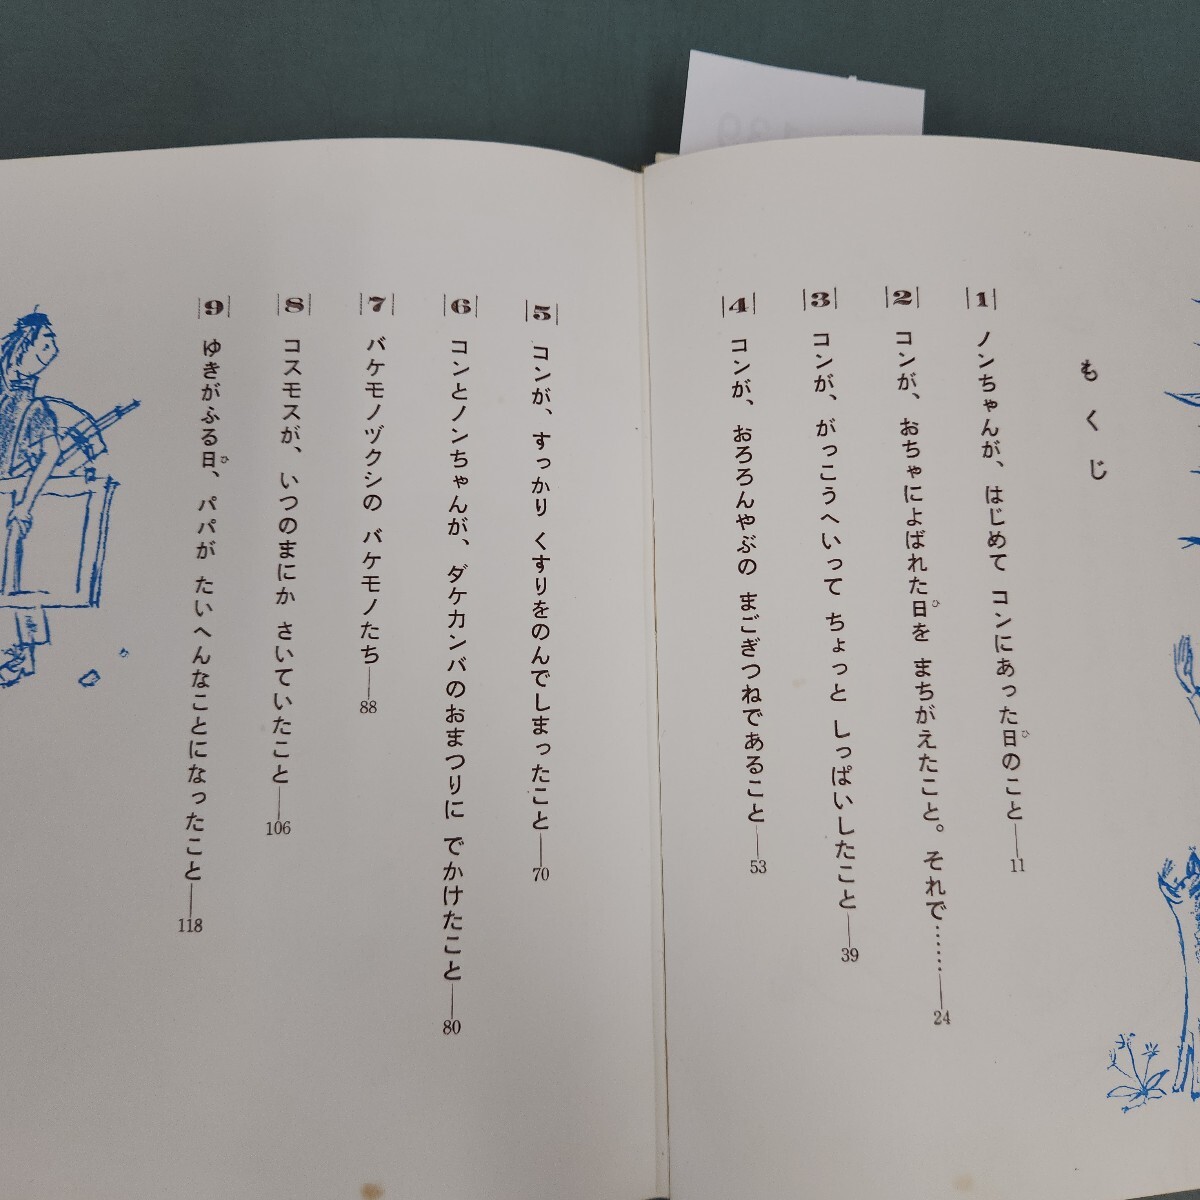 もくじ
1 ノンちゃんが、はじめて コンにあった日のこと――11
2 コンが、おちゃによばれた日を まちがえたこと。それで……――24
3 コンが、がっこうへいって ちょっと しっぱいしたこと――39
4 コンが、おろろんやぶの まごぎつねであること――53
5 コンが、すっかり くすりをのんでしまったこと――70
6 コンとノンちゃんが、ダケカンバのおまつりに でかけたこと――80
7 バケモノヅクシの バケモノたち――88
8 コスモスが、いつのまにか さいていたこと――106
9 ゆきがふる日、パパが たいへんなことになったこと――118